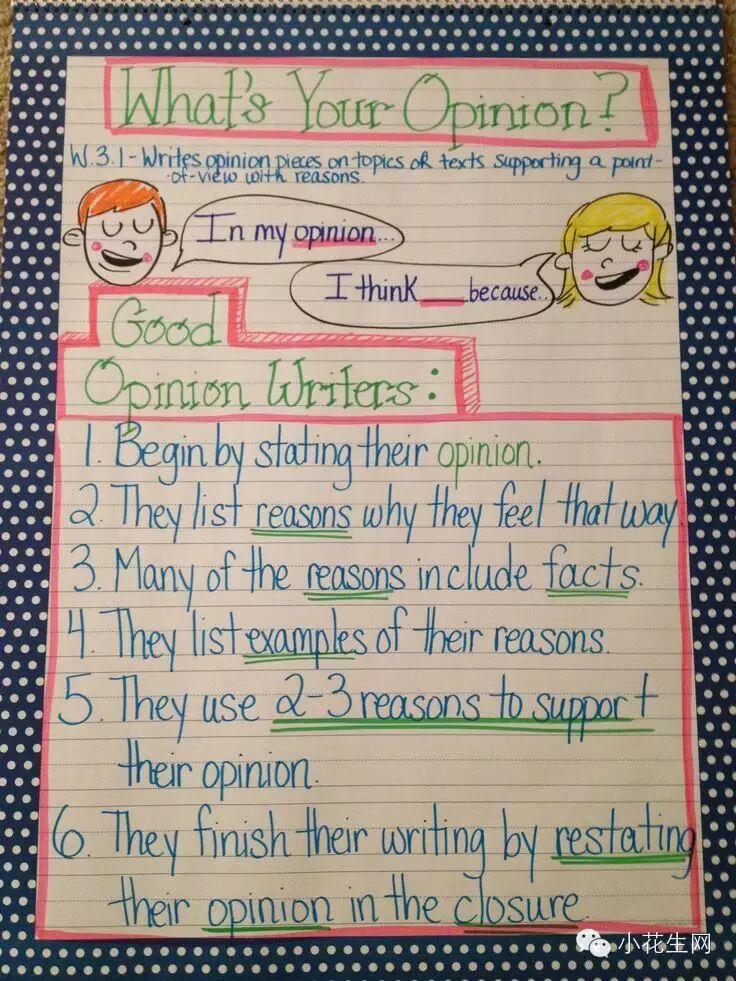 What's Your Opinion?
W.3.1-Writes opinion pieces on topics or texts supporting a point-
-of-view with reasons.
In my opinion...
I think ___ because..
Good
Opinion Writers:
1. Begin by stating their opinion.
2. They list reasons why they feel that way.
3. Many of the reasons include facts.
4. They list examples of their reasons.
5. They use 2-3 reasons to support
their opinion.
6. They finish their writing by restating
their opinion in the closure.
小花生网